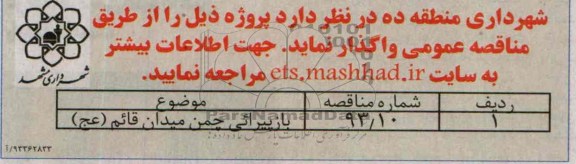 شهرداری منطقه ده در نظر دارد پروژه ذیل را از طریق
مناقصه عمومی واگذار نماید. جهت اطلاعات بیشتر
به سایت ets.mashhad.ir مراجعه نمایید.
شهرداری مشهد
ردیف شماره مناقصه موضوع
۱ ۹۳/۱۰ بازپیرائی چمن میدان قائم (عج)
۱/۹۳۳۶۲۸۳۳